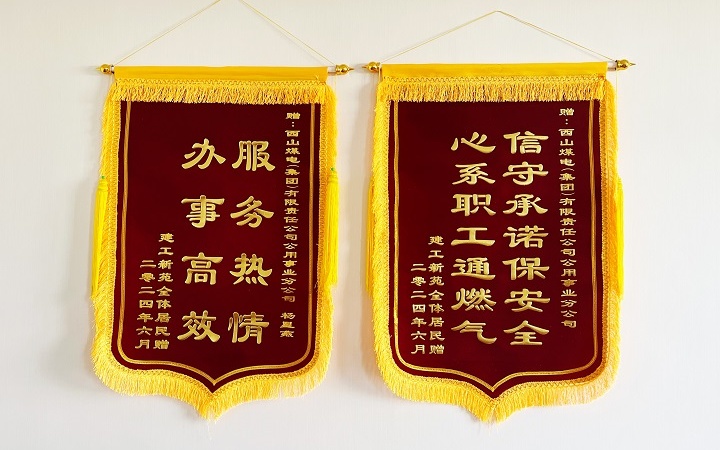 赠：西山煤电(集团)有限责任公司公用事业分公司 杨显燕
服务热情
办事高效
建工新苑全体居民赠
二零二四年六月
赠：西山煤电(集团)有限责任公司公用事业分公司
信守承诺保安全
心系职工通燃气
建工新苑全体居民赠
二零二四年六月